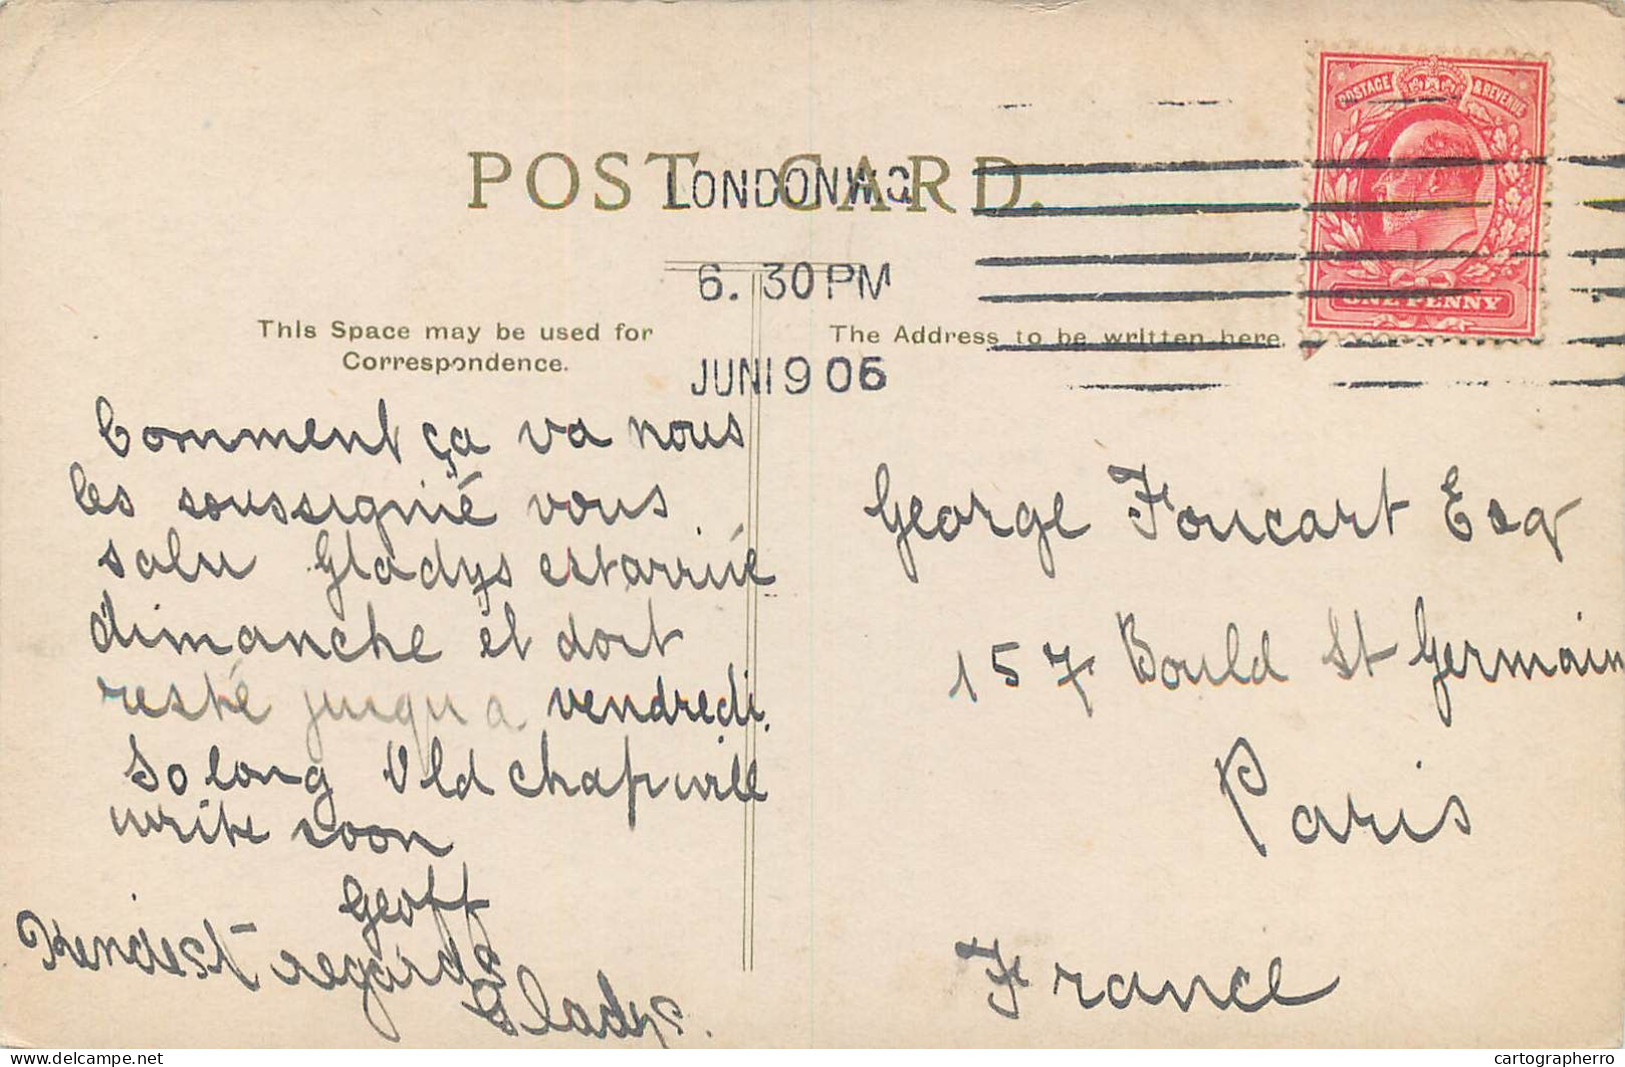 POST CARD.
LONDON W.C
6. 30 PM
JUN 19 06
POSTAGE & REVENUE
ONE PENNY
This Space may be used for
Correspondence.
The Address to be written here.
Comment ça va nous
les soussignié vous
salu Gladys est arrivé
dimanche et doit
resté jusqu a vendredi.
So long Old chap will
write soon
Geoff
Kindest regards
Gladys.
George Foucart Esq
157 Bould St Germain
Paris
France
delcampe.net
cartographerro